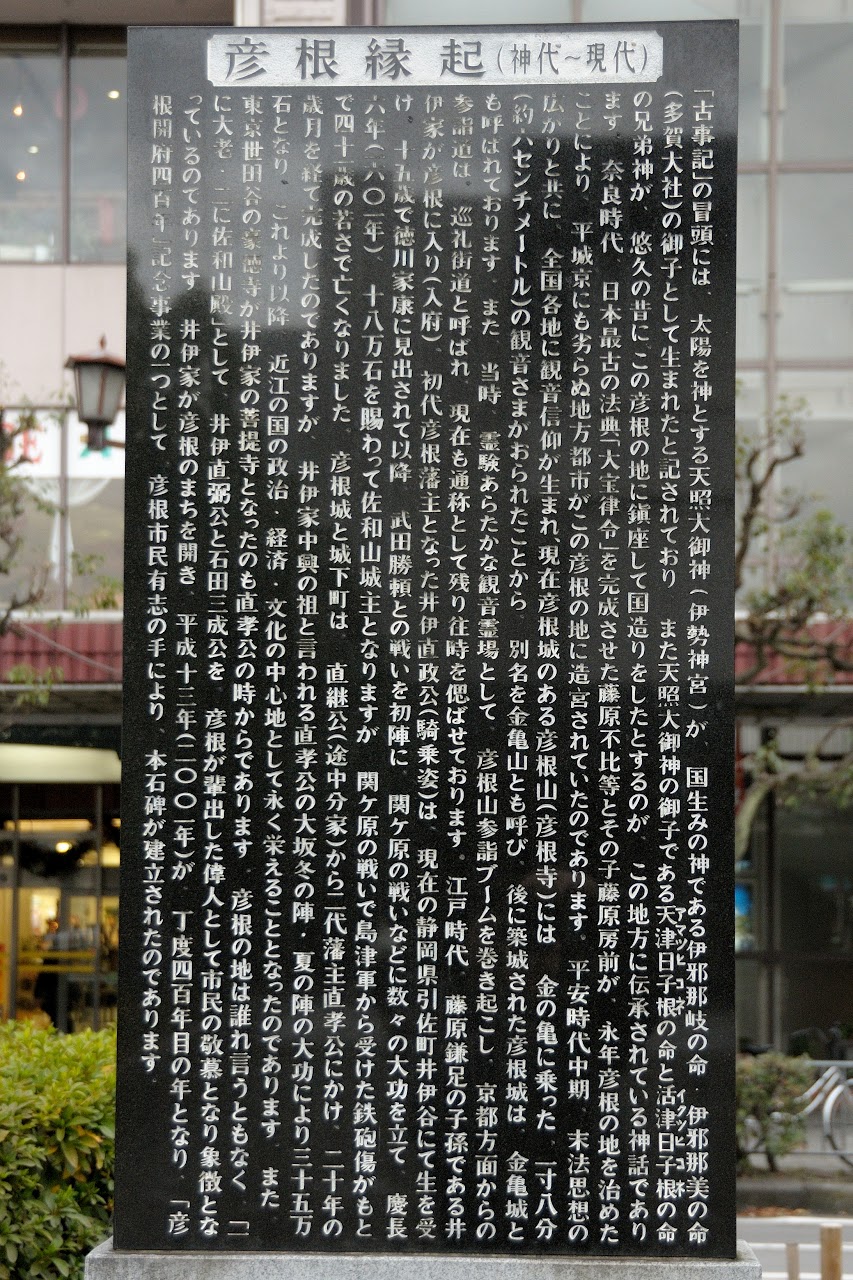 彦根縁起(神代~現代)
「古事記」の冒頭には、太陽を神とする天照大御神(伊勢神宮)が、国生みの神である伊邪那岐の命・伊邪那美の命
(多賀大社)の御子として生まれたと記されており、また天照大御神の御子である天津日子根の命と活津日子根の命
アマツヒコネ
イクツヒコネ
の兄弟神が、悠久の昔に、この彦根の地に鎮座して国造りをしたとするのが、この地方に伝承されている神話であり
ます。奈良時代、日本最古の法典「大宝律令」を完成させた藤原不比等とその子藤原房前が、永年彦根の地を治めた
ことにより、平城京にも劣らぬ地方都市がこの彦根の地に造宮されていたのであります。平安時代中期、末法思想の
広がりと共に、全国各地に観音信仰が生まれ、現在彦根城のある彦根山(彦根寺)には、金の亀に乗った、一寸八分
(約八センチメートル)の観音さまがおられたことから、別名を金亀山とも呼び、後に築城された彦根城は、金亀城と
も呼ばれております。また、当時、霊験あらたかな観音霊場として、彦根山参詣ブームを巻き起こし、京都方面からの
参詣道は、巡礼街道と呼ばれ、現在も通称として残り往時を偲ばせております。江戸時代、藤原鎌足の子孫である井
伊家が彦根に入り(入府)、初代彦根藩主となった井伊直政公(騎乗姿)は、現在の静岡県引佐町井伊谷にて生を受
け、十五歳で徳川家康に見出されて以降、武田勝頼との戦いを初陣に、関ケ原の戦いなどに数々の大功を立て、慶長
六年(一六〇一年)、十八万石を賜わって佐和山城主となりますが、関ケ原の戦いで島津軍から受けた鉄砲傷がもと
で四十二歳の若さで亡くなりました。彦根城と城下町は、直継公(途中分家)から二代藩主直孝公にかけ、二十年の
歳月を経て完成したのでありますが、井伊家中興の祖と言われる直孝公の大坂冬の陣・夏の陣の大功により三十五万
石となり、これより以降、近江の国の政治・経済・文化の中心地として永く栄えることとなったのであります。また、
東京世田谷の豪徳寺が井伊家の菩提寺となったのも直孝公の時からであります。彦根の地は誰れ言うともなく、「一
に大老・二に佐和山殿」として、井伊直弼公と石田三成公を、彦根が輩出した偉人として市民の敬慕となり象徴とな
っているのであります。井伊家が彦根のまちを開き、平成十三年(二〇〇一年)が、丁度四百年目の年となり、「彦
根開府四百年」記念事業の一つとして、彦根市民有志の手により、本石碑が建立されたのであります。